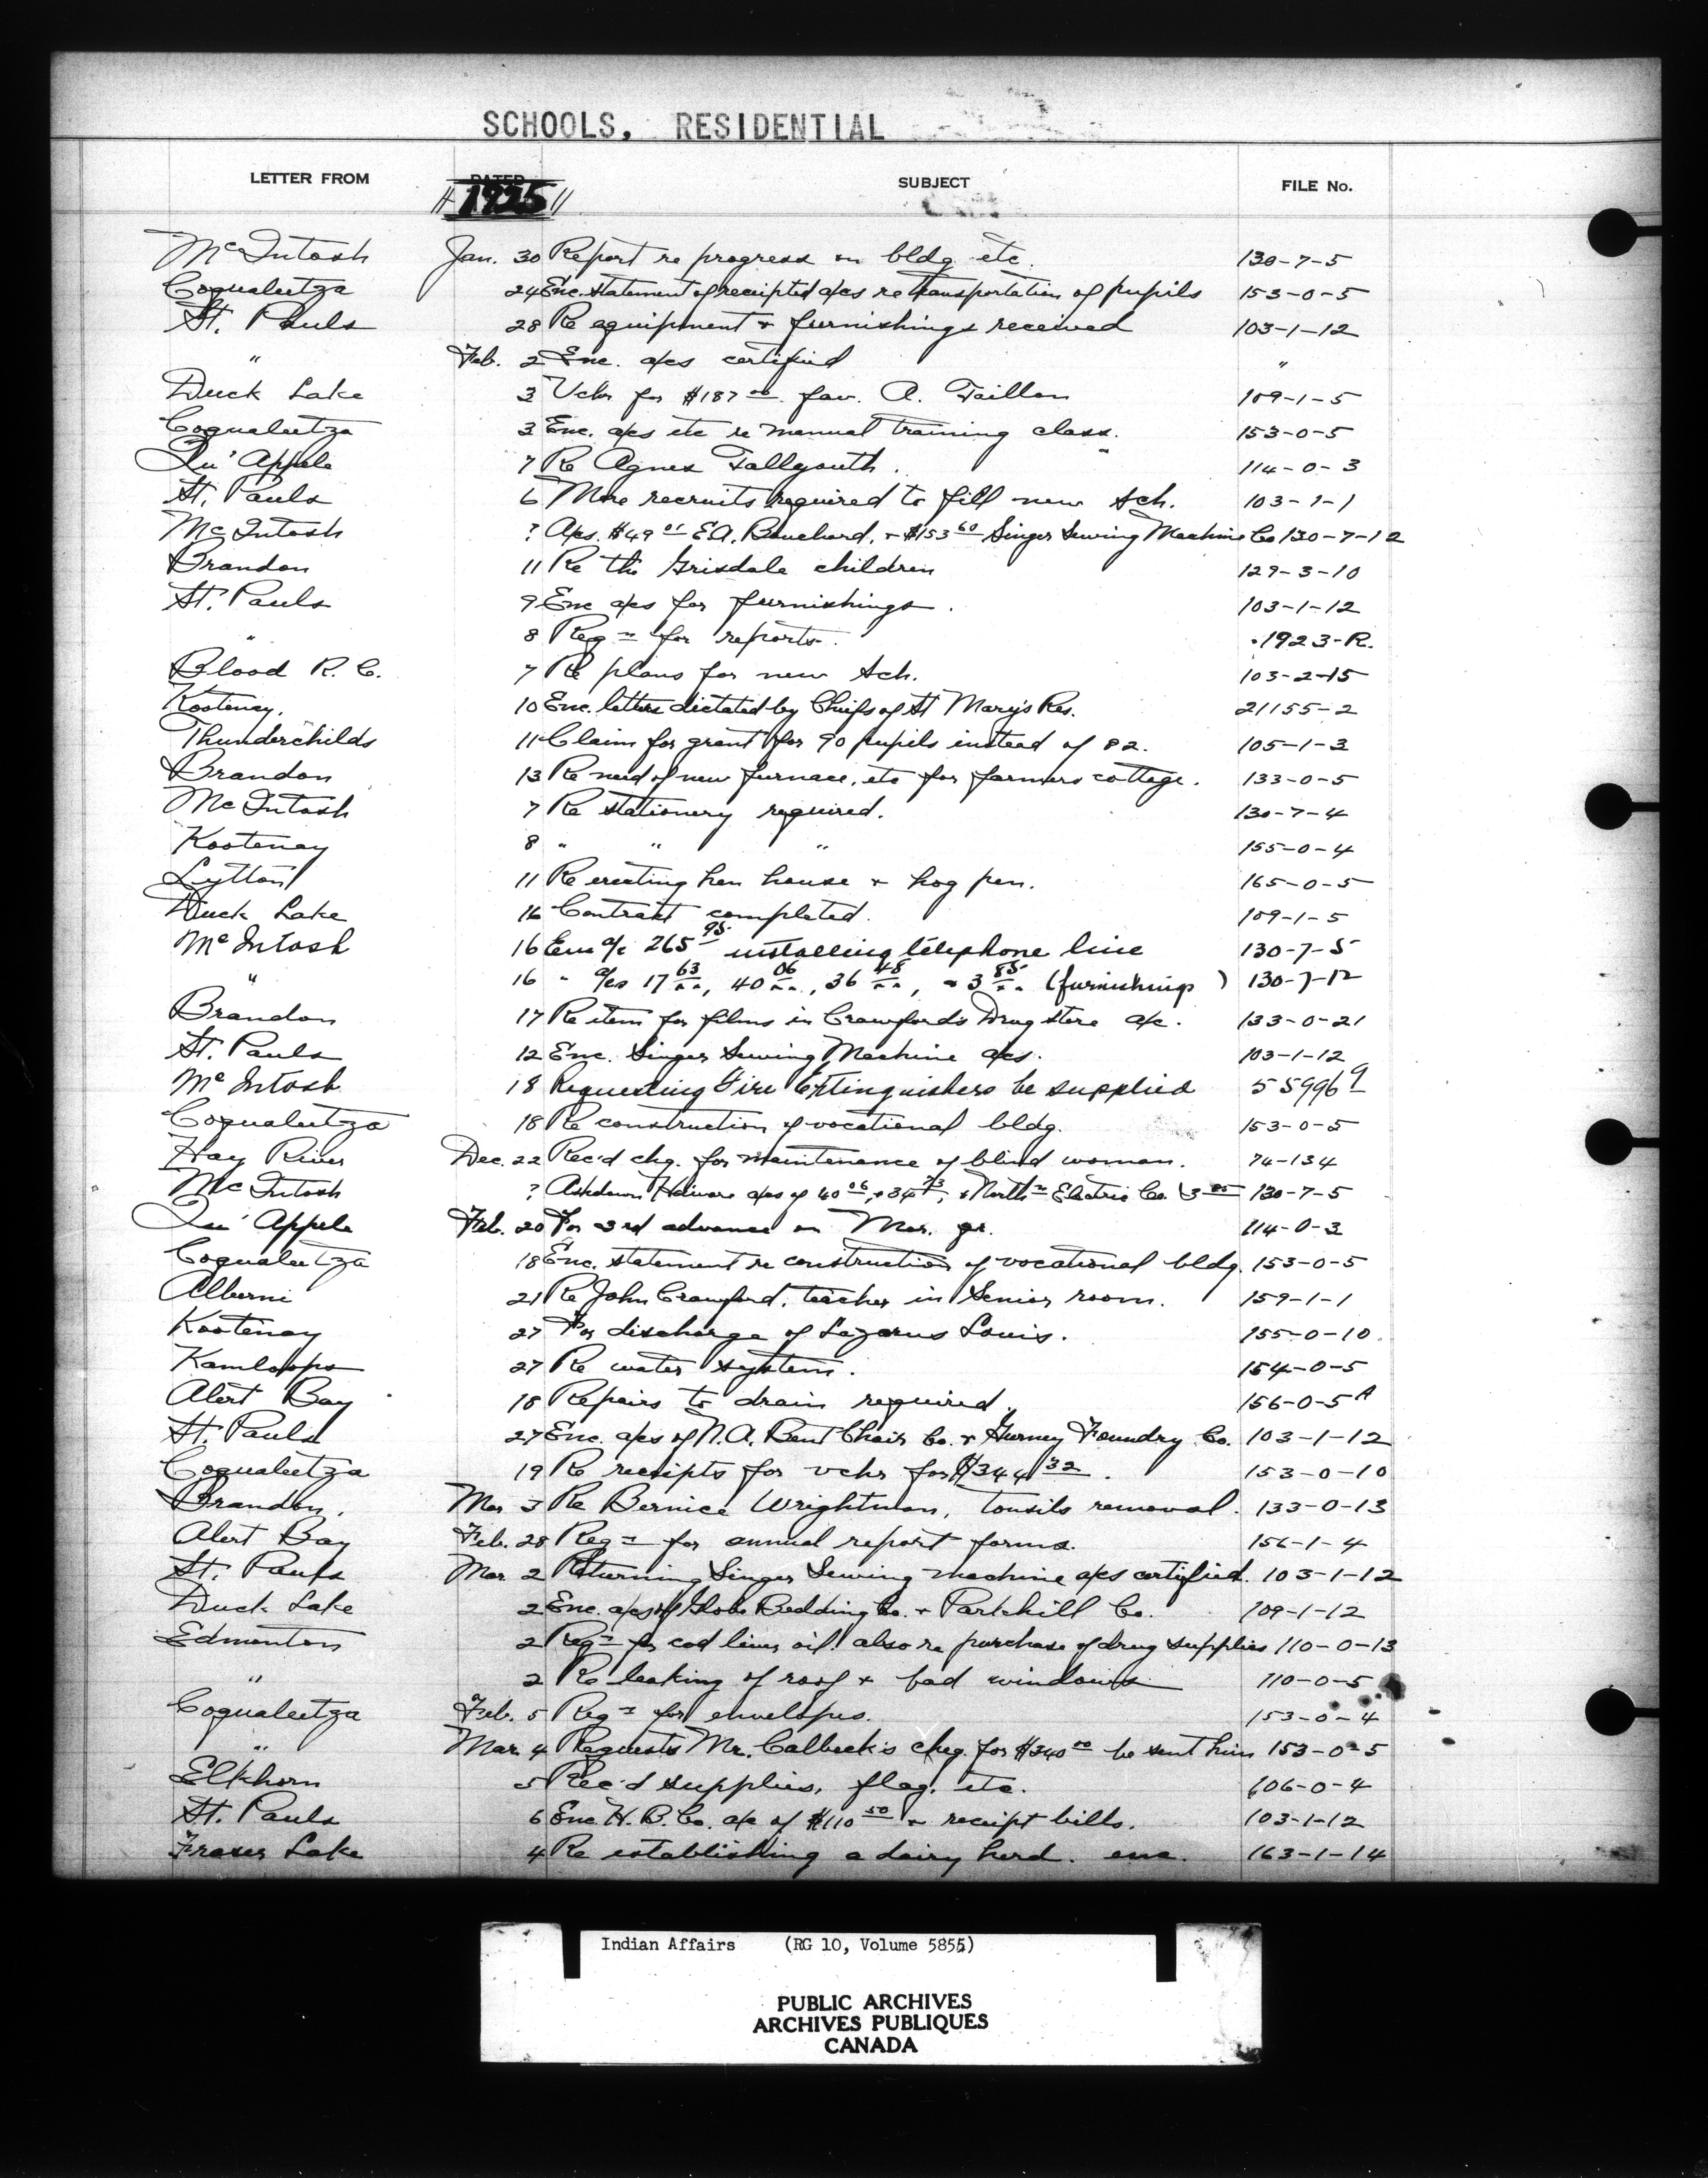 SCHOOLS, RESIDENTIAL
LETTER FROM DATED SUBJECT FILE No.
1925
McIntosh Jan. 30 Report re progress on bldg etc. 130-7-5
Coqualeetza 24 Enc. statement of receipted a/cs re transportation of pupils 153-0-5
St. Pauls 28 Re equipment & furnishings received 103-1-12
" Feb. 2 Enc. a/cs certified "
Duck Lake 3 Vchr for $187 00 fav. A. Taillon 109-1-5
Coqualeetza 3 Enc. a/cs etc re manual training class. 153-0-5
Qu'Appele 7 Re Agnes Tallyouth. 114-0-3
St. Pauls 6 More recruits required to fill new Sch. 103-1-1
McIntosh ? A/cs. $49 01 E.A. Bouchard, & $153 60 Singer Sewing Machine Co 130-7-12
Brandon 11 Re the Grisdale children 129-3-10
St. Pauls 9 Enc a/cs for furnishings. 103-1-12
" 8 Reqn for reports. 1923-R.
Blood R. C. 7 Re plans for new Sch. 103-2-15
Kootenay. 10 Enc. letters dictated by Chiefs of St Mary's Res. 21155-2
Thunderchilds 11 Claim for grant for 90 pupils instead of 82. 105-1-3
Brandon 13 Re need of new furnace, etc for farmers cottage. 133-0-5
McIntosh 7 Re stationery required. 130-7-4
Kootenay 8 " " " 155-0-4
Lytton 11 Re erecting hen house & hog pen. 165-0-5
Duck Lake 16 Contract completed. 109-1-5
McIntosh 16 Enc a/c 265 95 installing telephone line 130-7-5
" 16 " a/cs 17 63, 40 06, 36 48, & 3 85 (furnishings) 130-7-12
Brandon 17 Re item for films in Crawford's Drug store a/c. 133-0-21
St. Pauls 12 Enc. Singer Sewing Machine a/cs. 103-1-12
McIntosh 18 Requesting Fire Extinguishers be supplied 559969
Coqualeetza 18 Re construction of vocational bldg. 153-0-5
Hay River Dec. 22 Rec'd chq. for maintenance of blind woman. 74-134
McIntosh ? Ashdown a/cs of 40 06, & North n Electric Co. 130-7-5
Qu'Appele Feb. 20 For 3rd advance on Mar. qr. 114-0-3
Coqualeetza 18 Enc. statement re construction of vocational bldg. 153-0-5
Alberni 21 Re John Crawford, teacher in Senior room. 159-1-1
Kootenay 27 For discharge of Lazarus Louis. 155-0-10
Kamloops 27 Re water system. 154-0-5
Alert Bay 18 Repairs to drain required. 156-0-5A
St. Pauls 27 Enc. a/cs of N.A. Bent Chair Co. & Gurney Foundry Co. 103-1-12
Coqualeetza 19 Re receipts for vchr for $344 32. 153-0-10
Brandon. Mar 3 Re Bernice Wrightman, tonsils removal. 133-0-13
Alert Bay Feb. 28 Reqn for annual report forms. 156-1-4
St. Pauls Mar. 2 Returning Singer Sewing machine a/cs certified. 103-1-12
Duck Lake 2 Enc. a/cs of Globe Bedding Co. & Parkhill Co. 109-1-12
Edmonton 2 Reqn for cod liver oil also re purchase of drug supplies 110-0-13
" 2 Re leaking of roof & bad windows 110-0-5
Coqualeetza Feb. 5 Reqn for envelopes. 153-0-4
" Mar. 4 Requests Mr. Calbeck's chq. for $340 00 be sent him 153-0-5
Elkhorn 5 Rec'd supplies, flag, etc. 606-0-4
St. Pauls 6 Enc H. B. Co. a/c of $110 50 & receipt bills. 103-1-12
Fraser Lake 4 Re establishing a dairy herd. enc. 163-1-14
Indian Affairs (RG 10, Volume 5855)
PUBLIC ARCHIVES
ARCHIVES PUBLIQUES
CANADA